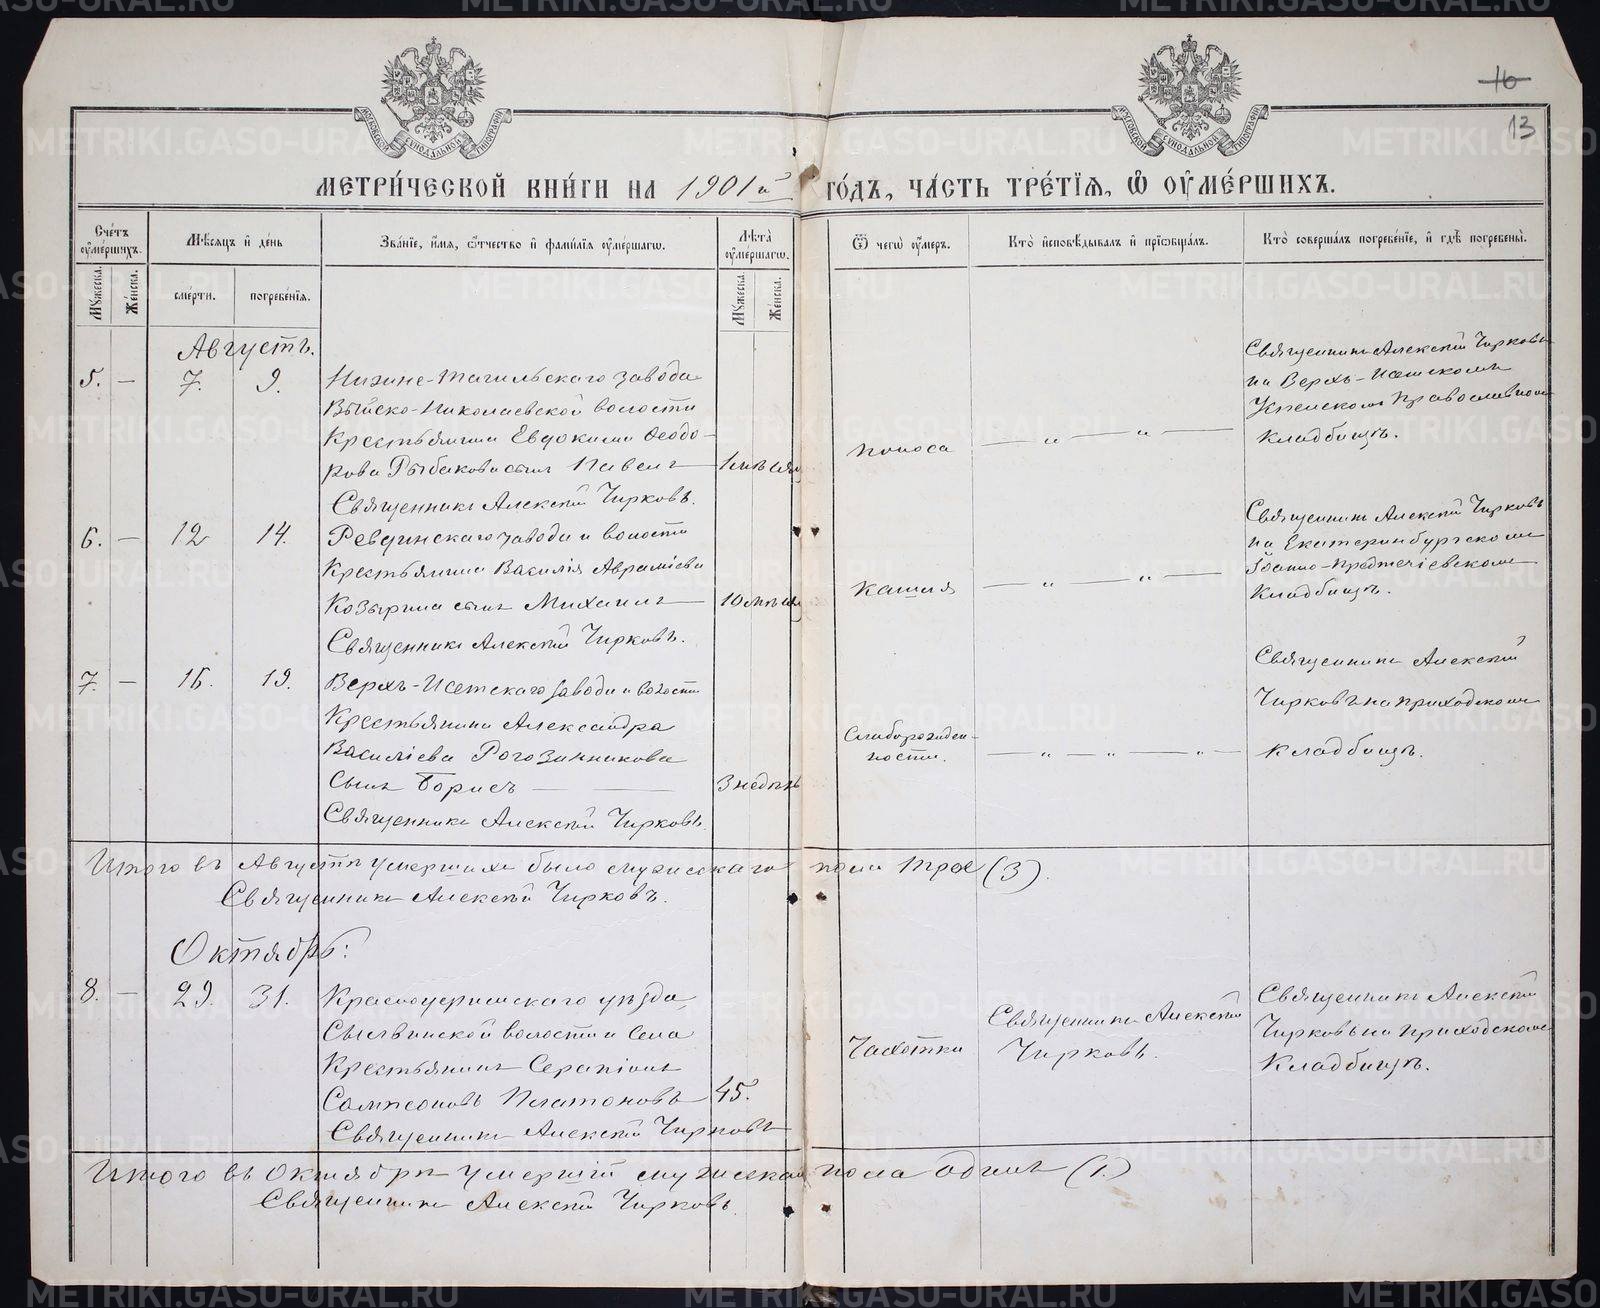 16
13
МЕТРИ́ЧЕСКОЙ КНИ́ГИ НА 1901й ГО́ДЪ, ЧА́СТЬ ТРЕ́ТІѦ, Ѽ ОУ҆МЕ́РШИХЪ.
Сче́тъ оу҆ме́ршихъ.
Мѣ́сяцъ и҆ де́нь
Зва́нїе, и҆́мѧ, ѻ҆́тчество и҆ фами́лїѧ оу҆ме́ршагѡ.
Лѣ́та оу҆ме́ршагѡ.
Ѿ чегѡ̀ оу҆́меръ.
Кто̀ и҆сповѣ́дывалъ и҆ прїѡбща́лъ.
Кто̀ соверша́лъ погребе́нїе, и҆ гдѣ̀ погребены̀.
Мꙋ́жеска.
Же́нска.
сме́рти.
погребе́нїѧ.
Мꙋ́жеска.
Же́нска.
Августъ.
5. — 7. 9. Нижне-Тагильскаго завода
Выйско-Николаевской волости
Крестьянина Евдокима Ѳеодо-
рова Рыбакова сынъ Павелъ — 1 мѣсяц
Священникъ Алексій Чирковъ.
поноса
— „ — „ —
Священникъ Алексій Чирковъ
на Верхъ-Исетскомъ
Успенскомъ Православномъ
кладбищѣ.
6. — 12 14. Ревдинскаго завода и волости
Крестьянина Василія Авраміева
Козырина сынъ Михаилъ — 10 мѣсяц
Священникъ Алексій Чирковъ.
Кашля
— „ — „ —
Священникъ Алексій Чирковъ
на Екатеринбургскомъ
Іоанно-Предтечіевскомъ
Кладбищѣ.
7. — 16. 19. Верхъ-Исетскаго завода и волости
Крестьянина Александра
Василіева Рогозинникова
Сынъ Борисъ — — 3 недѣль
Священникъ Алексій Чирковъ.
Слаборожден-
ности.
— „ — „ — „ —
Священникъ Алексій
Чирковъ на приходскомъ
кладбищѣ.
Итого въ Августѣ умершихъ было мужескаго пола трое (3).
Священникъ Алексій Чирковъ.
Октябрь:
8. — 29. 31. Красноуфимскаго уѣзда,
Сылвинской волости и Села
Крестьянинъ Серапіонъ
Сампсоновъ Платоновъ — 45.
Священникъ Алексій Чирковъ
Чахотки
Священникъ Алексій
Чирковъ.
Священникъ Алексій
Чирковъ на приходскомъ
Кладбищѣ.
Итого въ Октябрѣ умершій мужеска пола одинъ (1.)
Священникъ Алексій Чирковъ.
METRIKI.GASO-URAL.RU